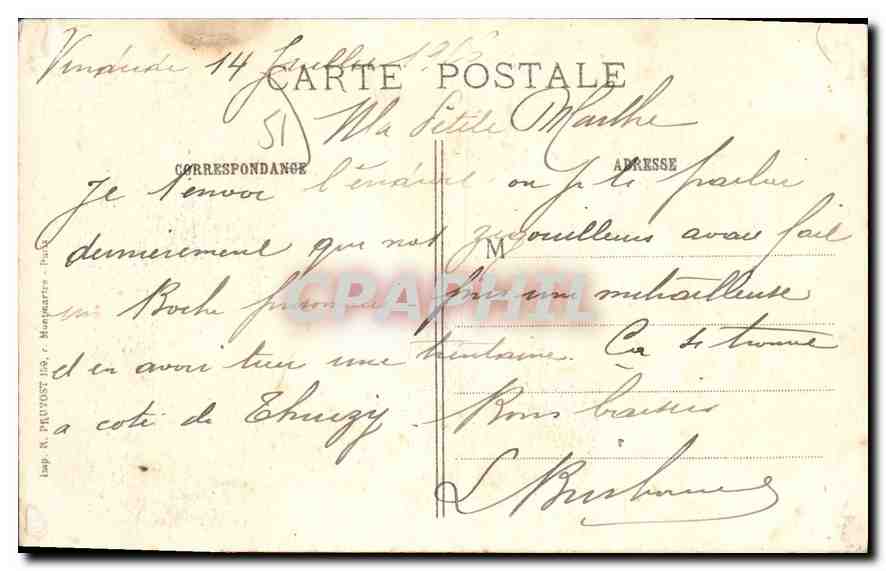 14 Juillet
CARTE POSTALE
51
Ma Petite Marthe
CORRESPONDANCE
ADRESSE
Je t'envoi l'endroit ou je te parlai
dernierement que nos zigouilleurs avait fait
M
un Boche prisonnier pris une mitrailleuse
CPAPHIL
et en avoir tuer une trentaine. Ca se trouve
a coté de Thuizy. Bons baisers
Imp. R. PRUVOST 159, r. Montmartre - Paris